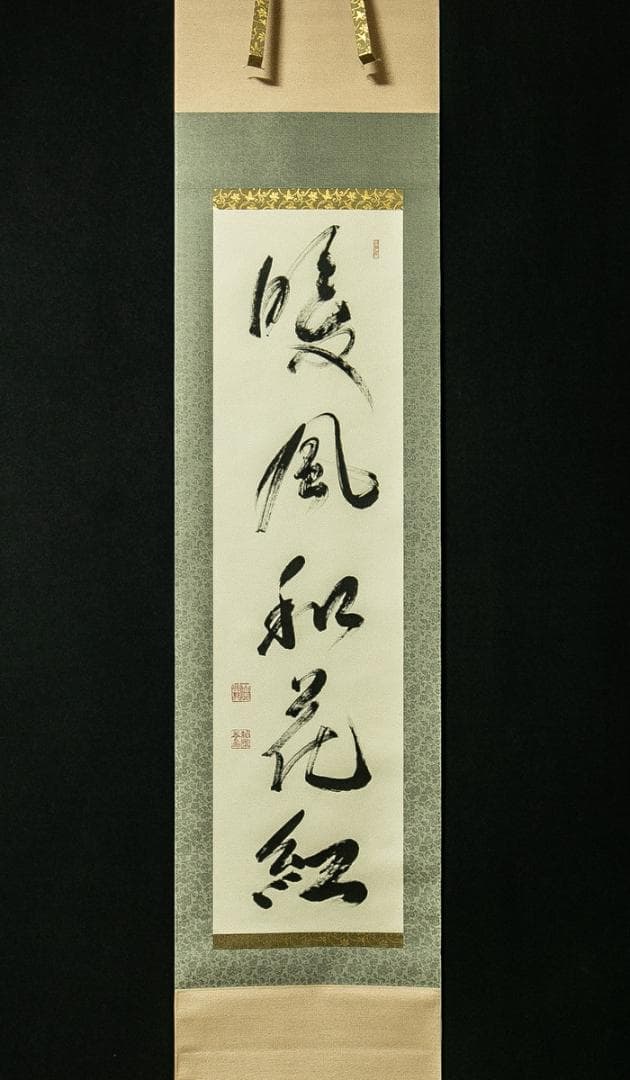 暖風和花紅